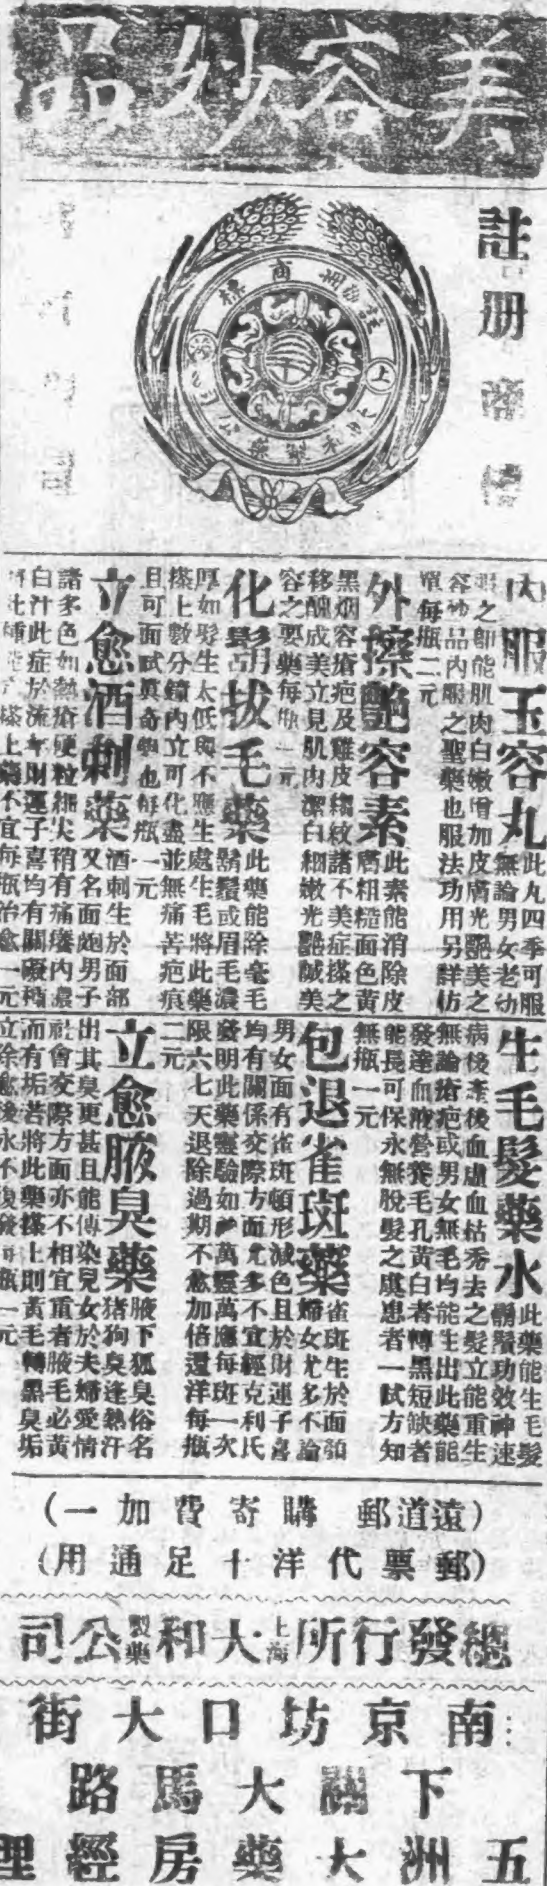 美容妙品
註册商標
註册商標
上海大和製藥公司
內服玉容丸
此丸四季可服
無論男女老幼
服之即能肌肉白嫩增加皮膚光艷美之
容妙品內服之聖藥也服法功用另詳仿
單每瓶二元
外擦艷容素
此素能消除皮
膚粗糙面色黃
黑烟容瘡疤及雞皮縐紋諸不美症搽之
移醜成美立見肌肉潔白細嫩光艷誠美
容之要藥每瓶一元
化鬍拔毛藥
此藥能除毫毛
鬍鬚或眉毛濃
厚如髮生太低與不應生處生毛將此藥
搽上數分鐘內立可化盡並無痛苦疤痕
且可面試眞奇學也每瓶一元
立愈酒刺藥
酒刺生於面部
又名面皰男子
諸多色如熱瘡硬粒細尖稍有痛癢內濃
白汁此症於流年財運子喜均有關礙
搽上藥不宜每瓶治愈一元
生毛髮藥水
此藥能生毛髮
鬍鬚功效神速
病後產後血虛血枯秃去之髮立能重生
無論瘡疤或男女無毛均能生出此藥能
發達血液營養毛孔黃白者轉黑短缺者
能長可保永無脫髮之虞患者一試方知
無瓶一元
包退雀斑藥
雀斑生於面頞
婦女尤多不論
男女面有雀斑頓形減色且於財運子喜
均有關係交際方面尤多不宜經克利氏
發明此藥靈驗如神萬靈萬應每斑一次
限六七天退除過期不愈加倍還洋每瓶
二元
立愈腋臭藥
腋下狐臭俗名
猪狗臭逢熱汗
出其臭更甚且能傳染兒女於夫婦愛情
社會交際方面亦不相宜重者腋毛必黃
而有垢若將此藥搽上則黃毛轉黑臭垢
立除愈後永不復發每瓶一元
(遠道郵購寄費加一)
(郵票代洋十足通用)
總發行所上海大和製藥公司
南京坊口大街
下關大馬路
五洲大藥房經理